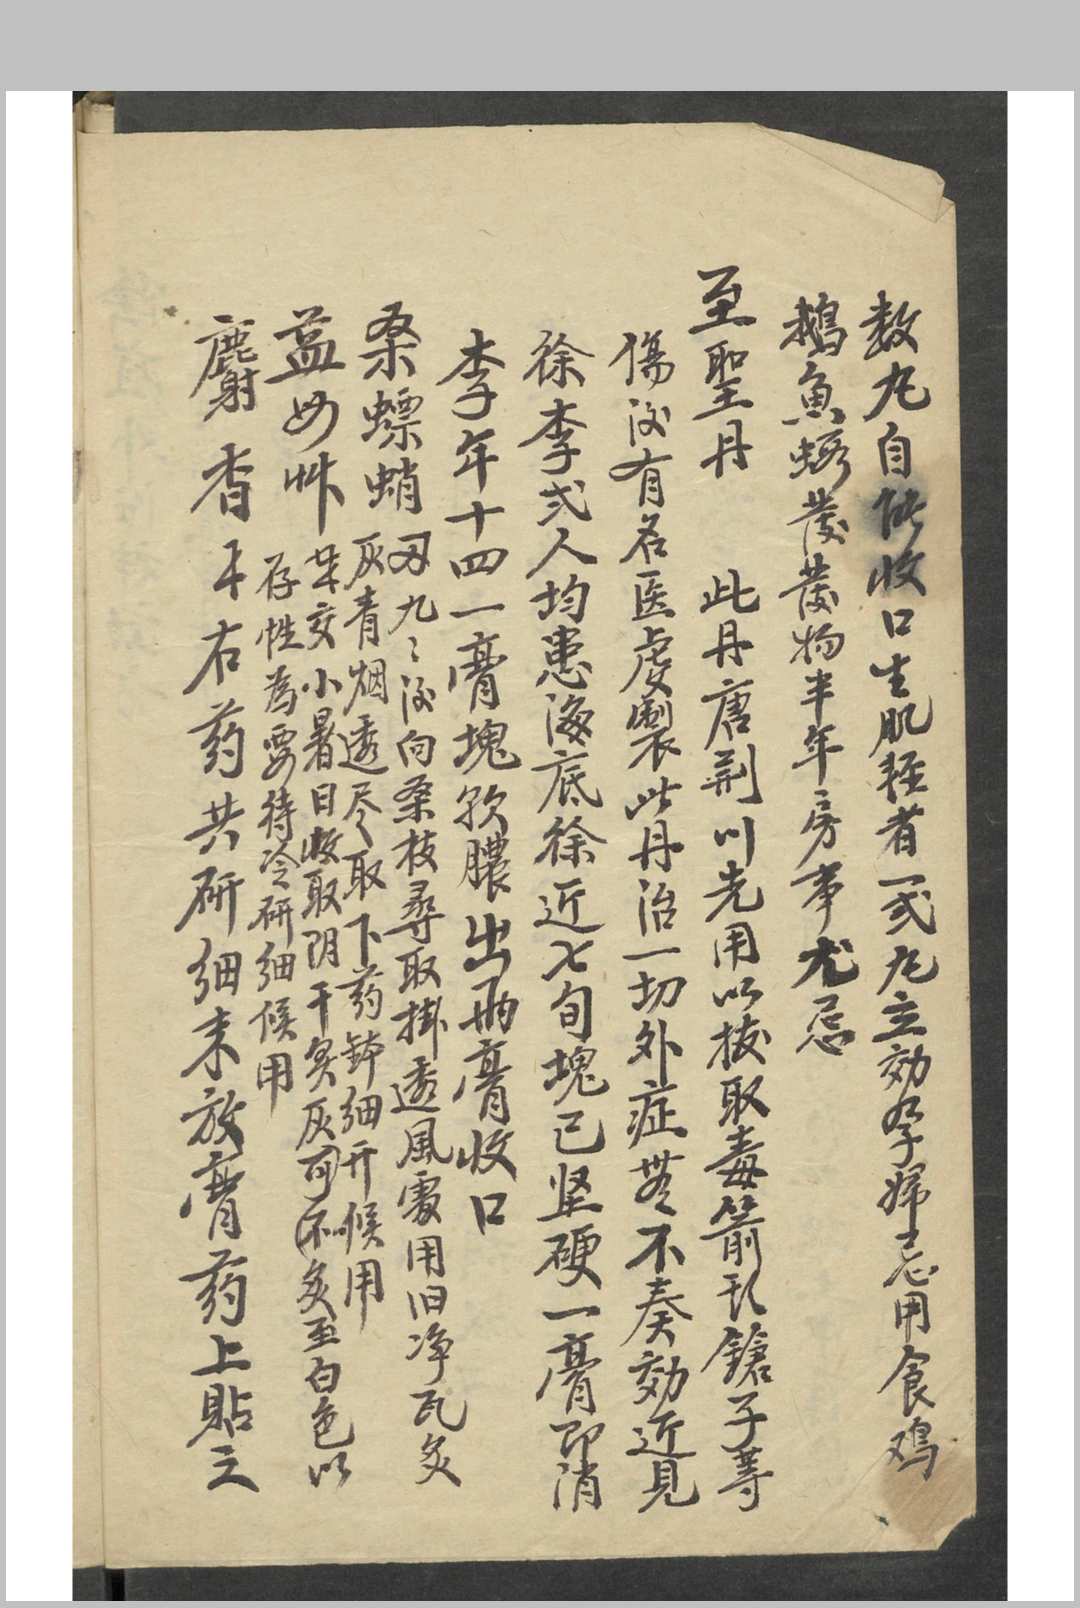 数九自能收口生肌轻者一弍九立効孕婦忌用食鸡
鹅魚虾發發物半年房事尤忌
至聖丹 此丹唐荆川先用以拔取毒箭头鎗子等
傷後有名医虔製此丹治一切外症無不奏効近見
徐李弍人均患海底徐近七旬塊已坚硬一膏即消
李年十四一膏塊软膿出两膏收口
桑螵蛸 九九後向桑枝尋取掛透風處用旧净瓦炙
灰青烟透尽取下药钵细研候用
益母艸 交小暑日收取阴干炙灰不可炙至白色以
存性為要待冷研细候用
麝香 右药共研细末放膏药上貼之